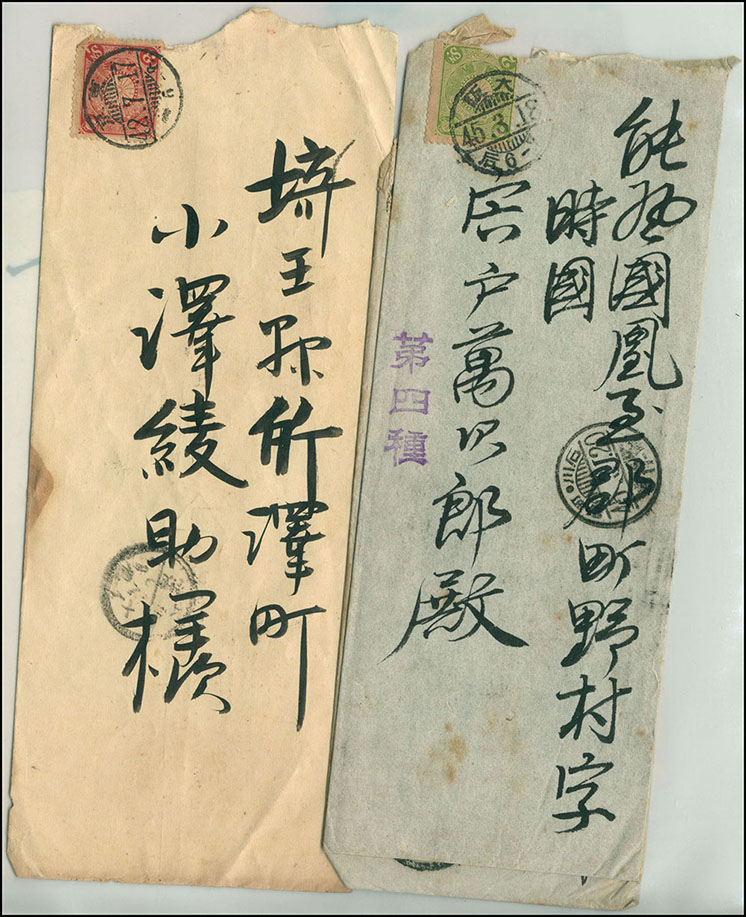 能登國鳳至郡町野村字
時國
宍戸萬次郎殿
第四種
大阪
45.3.18
埼玉縣所澤町
小澤綾助様